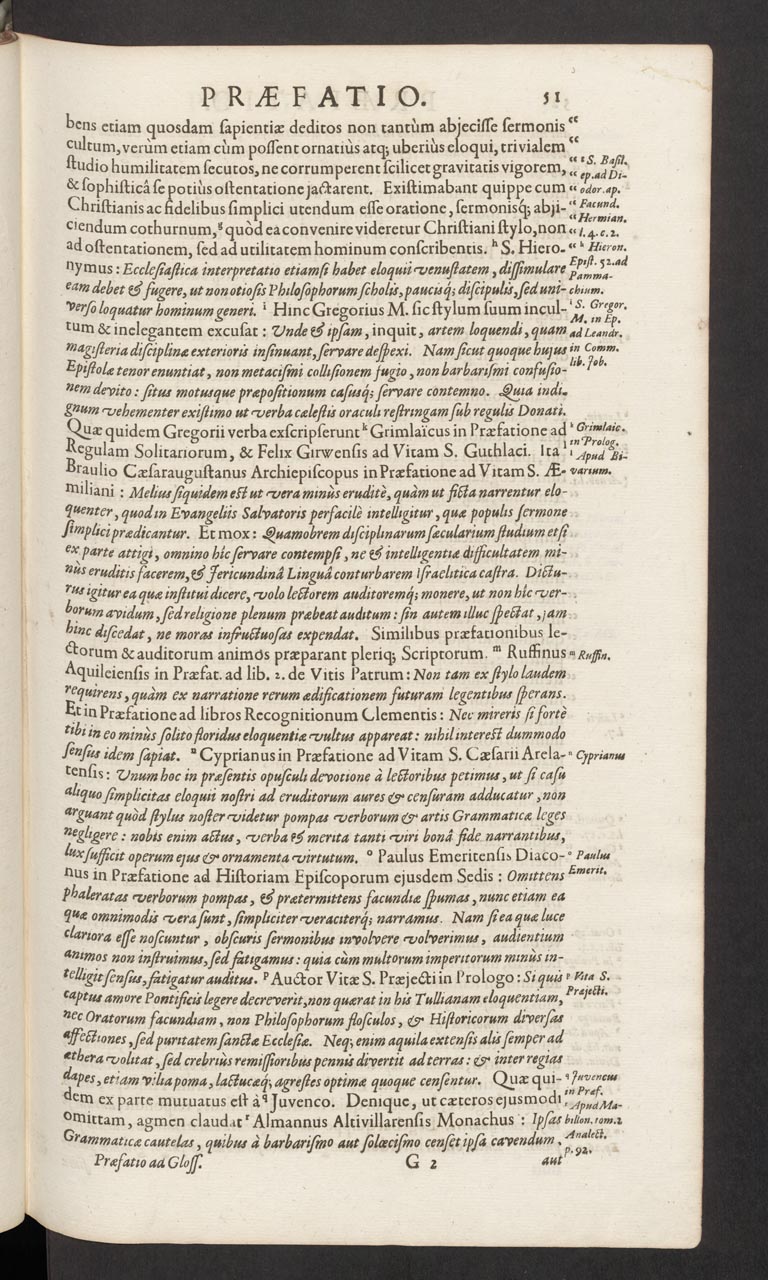 PRÆFATIO. 51
bens etiam quosdam sapientiæ deditos non tantùm abjecisse sermonis “
cultum, verum etiam cùm possent ornatiùs atq; uberiùs eloqui, trivialem “
studio humilitatem secutos, ne corrumperent scilicet gravitatis vigorem, “ ᵍ S. Basil.
& sophisticâ se potiùs ostentatione jactarent. Existimabant quippe cum “ ep. ad Di-
Christianis ac fidelibus simplici utendum esse oratione, sermonisq; abji- “ odor. ap.
ciendum cothurnum, ᵍ quòd ea convenire videretur Christiani stylo, non “ Facund.
ad ostentationem, sed ad utilitatem hominum conscribentis. ʰ S. Hiero- “ Hermian.
“ l. 4. c. 2.
nymus: Ecclesiastica interpretatio etiamsi habet eloquii venustatem, dissimulare “ ʰ Hieron.
eam debet & fugere, ut non otiosis Philosophorum scholis, paucisq; discipulis, sed uni- Epist. 52. ad
Pamma-
chium.
verso loquatur hominum generi. ⁱ Hinc Gregorius M. sic stylum suum incul- ⁱ S. Gregor.
tum & inelegantem excusat: Unde & ipsam, inquit, artem loquendi, quam M. in Ep.
ad Leandr.
magisteria disciplinæ exterioris insinuant, servare despexi. Nam sicut quoque hujus in Comm.
Epistolæ tenor enuntiat, non metacismi collisionem fugio, non barbarismi confusio- lib. Job.
nem devito: situs motusque præpositionum casusq; servare contemno. Quia indi-
gnum vehementer existimo ut verba cælestis oraculi restringam sub regulis Donati.
Quæ quidem Gregorii verba exscripserunt ᵏ Grimlaïcus in Præfatione ad ᵏ Grimlaic.
Regulam Solitariorum, & Felix Girwensis ad Vitam S. Guthlaci. Ita ˡ in Prolog.
Braulio Cæsaraugustanus Archiepiscopus in Præfatione ad Vitam S. Æ- ˡ Apud Bi-
varium.
miliani: Melius siquidem est ut vera minùs eruditè, quàm ut ficta narrentur elo-
quenter, quod in Evangeliis Salvatoris perfacilè intelligitur, quæ populis sermone
simplici prædicantur. Et mox: Quamobrem disciplinarum sæcularium studium etsi
ex parte attigi, omnino hic servare contempsi, ne & intelligentiæ difficultatem mi-
nùs eruditis facerem, & Jericundinâ Linguâ conturbarem Israelitica castra. Dictu-
rus igitur ea quæ institui dicere, volo lectorem auditoremq; monere, ut non hic ver-
borum avidum, sed religione plenum præbeat auditum: sin autem illuc spectat, jam
hinc discedat, ne moras infructuosas expendat. Similibus præfationibus le-
ctorum & auditorum animos præparant pleriq; Scriptorum. ᵐ Ruffinus ᵐ Ruffin.
Aquileiensis in Præfat. ad lib. 2. de Vitis Patrum: Non tam ex stylo laudem
requirens, quàm ex narratione rerum ædificationem futuram legentibus sperans.
Et in Præfatione ad libros Recognitionum Clementis: Nec mireris si fortè
tibi in eo minùs solito floridus eloquentiæ vultus appareat: nihil interest dummodo
sensus idem sapiat. ⁿ Cyprianus in Præfatione ad Vitam S. Cæsarii Arela- ⁿ Cyprianus
tensis: Unum hoc in præsentis opusculi devotione à lectoribus petimus, ut si casu
aliquo simplicitas eloquii nostri ad eruditorum aures & censuram adducatur, non
arguant quòd stylus noster videtur pompas verborum & artis Grammaticæ leges
negligere: nobis enim actus, verba & merita tanti viri bonâ fide narrantibus,
lux sufficit operum ejus & ornamenta virtutum. ᵒ Paulus Emeritensis Diaco- ᵒ Paulus
nus in Præfatione ad Historiam Episcoporum ejusdem Sedis: Omittens Emerit.
phaleratas verborum pompas, & prætermittens facundiæ spumas, nunc etiam ea
quæ omnimodis vera sunt, simpliciter veraciterq; narramus. Nam si ea quæ luce
clariora esse noscuntur, obscuris sermonibus involvere volverimus, audientium
animos non instruimus, sed fatigamus: quia cùm multorum imperitorum minùs in-
telligit sensus, fatigatur auditus. ᵖ Auctor Vitæ S. Præjecti in Prologo: Si quis ᵖ Vita S.
captus amore Pontificis legere decreverit, non quærat in his Tullianam eloquentiam, Præjecti.
nec Oratorum facundiam, non Philosophorum flosculos, & Historicorum diversas
affectiones, sed puritatem sanctæ Ecclesiæ. Neq; enim aquila extensis alis semper ad
æthera volitat, sed crebriùs remissioribus pennis divertit ad terras: & inter regias
dapes, etiam vilia poma, lactucæq; agrestes optimæ quoque censentur. Quæ qui- ᑫ Juvencus
dem ex parte mutuatus est à ᑫ Juvenco. Denique, ut cæteros ejusmodi in Præf.
omittam, agmen claudat ʳ Almannus Altivillarensis Monachus: Ipsas ʳ Apud Ma-
billon. tom. 2
Grammaticæ cautelas, quibus à barbarismo aut solœcismo censet ipsa cavendum, Analect.
p. 92.
Præfatio ad Gloss. G 2 aut